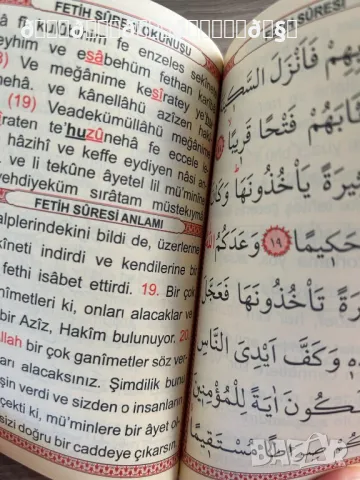 FETİH SÛRESİ OKUNUŞU
fî kulûbihim fe enzeles sekînete
eyhim ve esâbehüm fethan karîba
) Ve meğânime kesîratey ye'huz
ve kânellâhü azîzen hakî
(19) Veadekümüllâhü meğânime
îraten te'huzûnehâ fe eccele
hâzihî ve keffe eydiyen nâsi an
ve li tekûne âyetel lil mü'minîne
yehdiyeküm sırâtam müstekıymâ
FETİH SÛRESİ ANLAMI
alplerindekini bildi de, üzerlerine
kîneti indirdi ve kendilerine bir
fethi isâbet ettirdi. 19. Bir çok
nîmetleri ki, onları alacaklar ve
bir Azîz, Hakîm bulunuyor. 20.
llah bir çok ganîmetler söz ver-
alacaksınız. Şimdilik bunu
şin verdi ve sizden o insanların
çekti ki, mü'minlere bir âyet ol-
sizi doğru bir caddeye çıkarsın.
SÛRESİ
فَاَنْزَلَ السَّكٖ
فَتْحًا قَرٖيبًا ١٨
يَاْخُذُونَهَا وَكَانَ
حَكٖيمًا ١٩ وَعَدَكُمُ اللّٰهُ
تَاْخُذُونَهَا فَعَجَّلَ
وَكَفَّ اَيْدِىَ النَّاسِ
اٰيَةً لِلْمُؤْمِنٖينَ
صِرَاطًا مُسْتَقٖيمًا